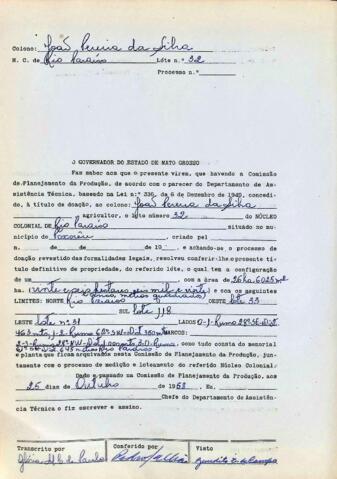 Colono: João Pereira da Silva
N. C. de Rio Paraíso Lóte n.º 32
Processo n.º
O GOVERNADOR DO ESTADO DE MATO GROSSO
Faz saber aos que o presente virem, que havendo a Comissão
de Planejamento da Produção, de acordo com o parecer do Departamento de As-
sistência Técnica, baseado na Lei n.º 336, de 6 de Dezembro de 1949, concedi-
do, à título de doação, ao colono: João Pereira da Silva
agricultor, o lóte número 32 do NÚCLEO
COLONIAL DE Rio Paraíso situado no mu-
nicípio de Poxoréu, criado pela
n. de de de 19 e achando-se o processo de
doação revestido das formalidades legais, resolveu conferir-lhe o presente tí
tulo definitivo de propriedade, do referido lóte, o qual tem a configuração
de um com a área de 26 ha. 6025 m2
ha. (vinte e seis hectares, seis mil e vinte e cinco metros quadrados) e com os seguintes
LIMITES: NORTE Rio Paraíso OESTE lote 33
SUL lote 118
LESTE lote nº 31 LADOS 0-1-Rumo
MARCOS:
como tudo consta do memorial
e planta que ficam arquivados nesta Comissão de Planejamento da Produção, jun-
tamente com o processo de medição e loteamento do referido Núcleo Colonial.
Dado e passado na Comissão de Planejamento da Produção, aos
25 dias de Outubro de 1958. Eu,
Chefe do Departamento de Assistên-
cia Técnica o fiz escrever e assino.
Transcrito por Conferido por Visto